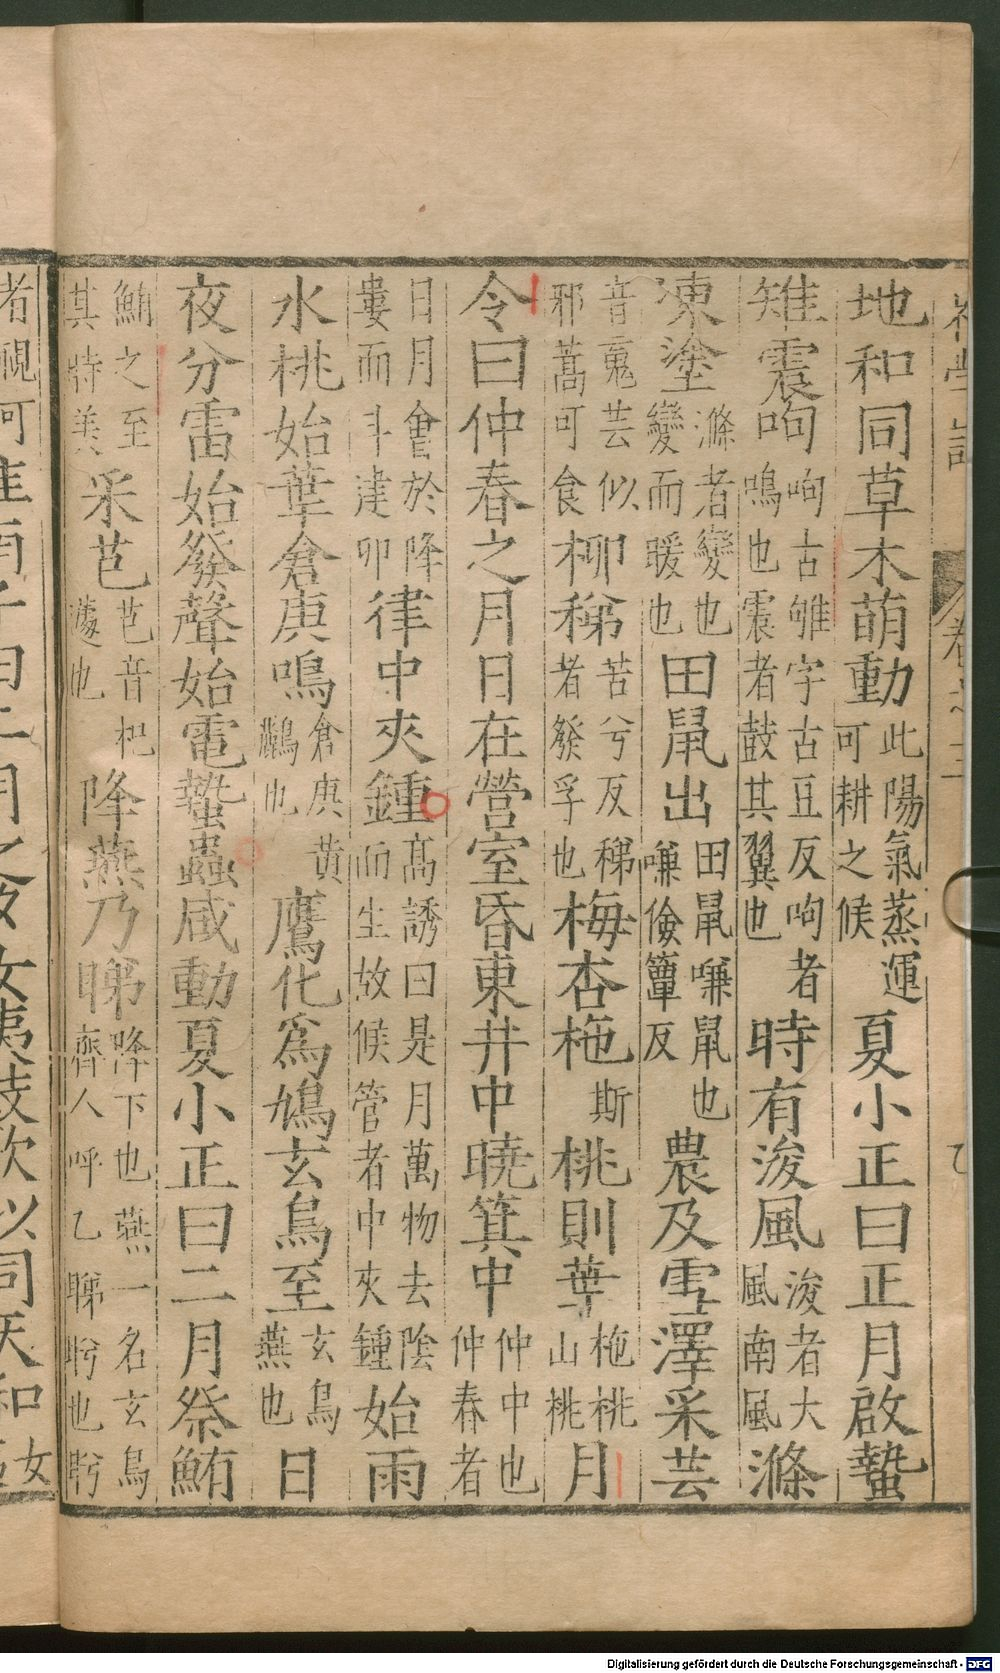 地和同草木萌動此陽氣蒸運可耕之候夏小正曰正月啟蟄
雉震呴呴古雊字古豆反呴者鳴也震者鼓其翼也時有浚風浚者大風南風滌
凍塗滌者變也變而暖也田鼠出田鼠嗛鼠也嗛儉簟反農及雪澤采芸
音䰟芸似邪蒿可食柳稊苦兮反稊者發孚也梅杏杝斯桃則華杝桃山桃月
令曰仲春之月日在營室昏東井中曉箕中仲中也仲春者
日月會於降婁而斗建卯律中夾鍾高誘曰是月萬物去陰而生故候管者中夾鍾始雨
水桃始華倉庚鳴倉庚黃鸝也鷹化為鳩玄鳥至玄鳥燕也日
夜分雷始發聲始電蟄蟲咸動夏小正曰二月祭鮪
鮪之至其時美采芑芑音杞蘧也降燕乃睇降下也燕一名玄鳥齊人呼乙睇眄也眄
卷之三
Digitalisierung gefördert durch die Deutsche Forschungsgemeinschaft - DFG